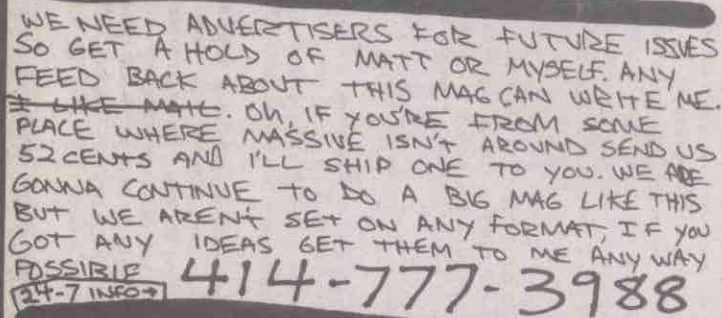 WE NEED ADVERTISERS FOR FUTURE ISSUES
SO GET A HOLD OF MATT OR MYSELF. ANY
FEED BACK ABOUT THIS MAG CAN WRITE ME
I LIKE MAIL. Oh, IF YOU'RE FROM SOME
PLACE WHERE MASSIVE ISN'T AROUND SEND US
52 CENTS AND I'LL SHIP ONE TO YOU. WE ARE
GONNA CONTINUE TO DO A BIG MAG LIKE THIS
BUT WE AREN'T SET ON ANY FORMAT, IF YOU
GOT ANY IDEAS GET THEM TO ME ANY WAY
POSSIBLE 414-777-3988
24-7 INFO→